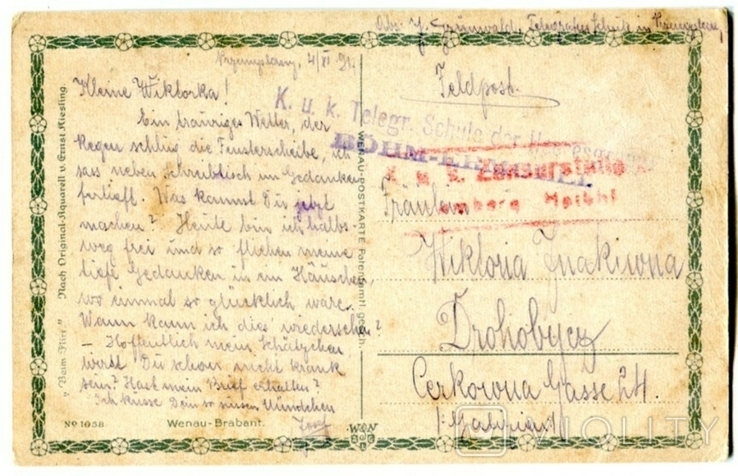 Abs: J. Grünwald, Telegrafenschule in
Przemyslany, 4/XI
Feldpost.
Kleine Wiktorka!
Ein trauriges Wetter, der
Regen schlug die Fensterscheibe, ich
sass neben Schreibtisch im Gedanken
vertieft. Was kannst Du jetzt
machen? Heute bin ich halbs-
weg frei und so fliehen meine
tiefe Gedanken in ein Häuschen
wo einmal so glücklich wäre.
Wann kann ich dies wiedersehen?
- Hoffentlich mein Schätzchen
wirst Du schon nicht krank
sein? Hast mein Brief erhalten?
Ich küsse Dein so süsses Mündchen
K. u. k. Telegr. Schule der
BÖHM-ERMOLLI
k. u. k. Zensurstelle
Fräulein
Wiktoria
Drohobycz
Cerkowna Gasse 24.
/:Galizien:/
"Beim Flirt." Nach Original-Aquarell v. Ernst Kiesling.
WENAU-POSTKARTE Patentamtl. gesch.
No 1058
Wenau-Brabant.
VIOLITY